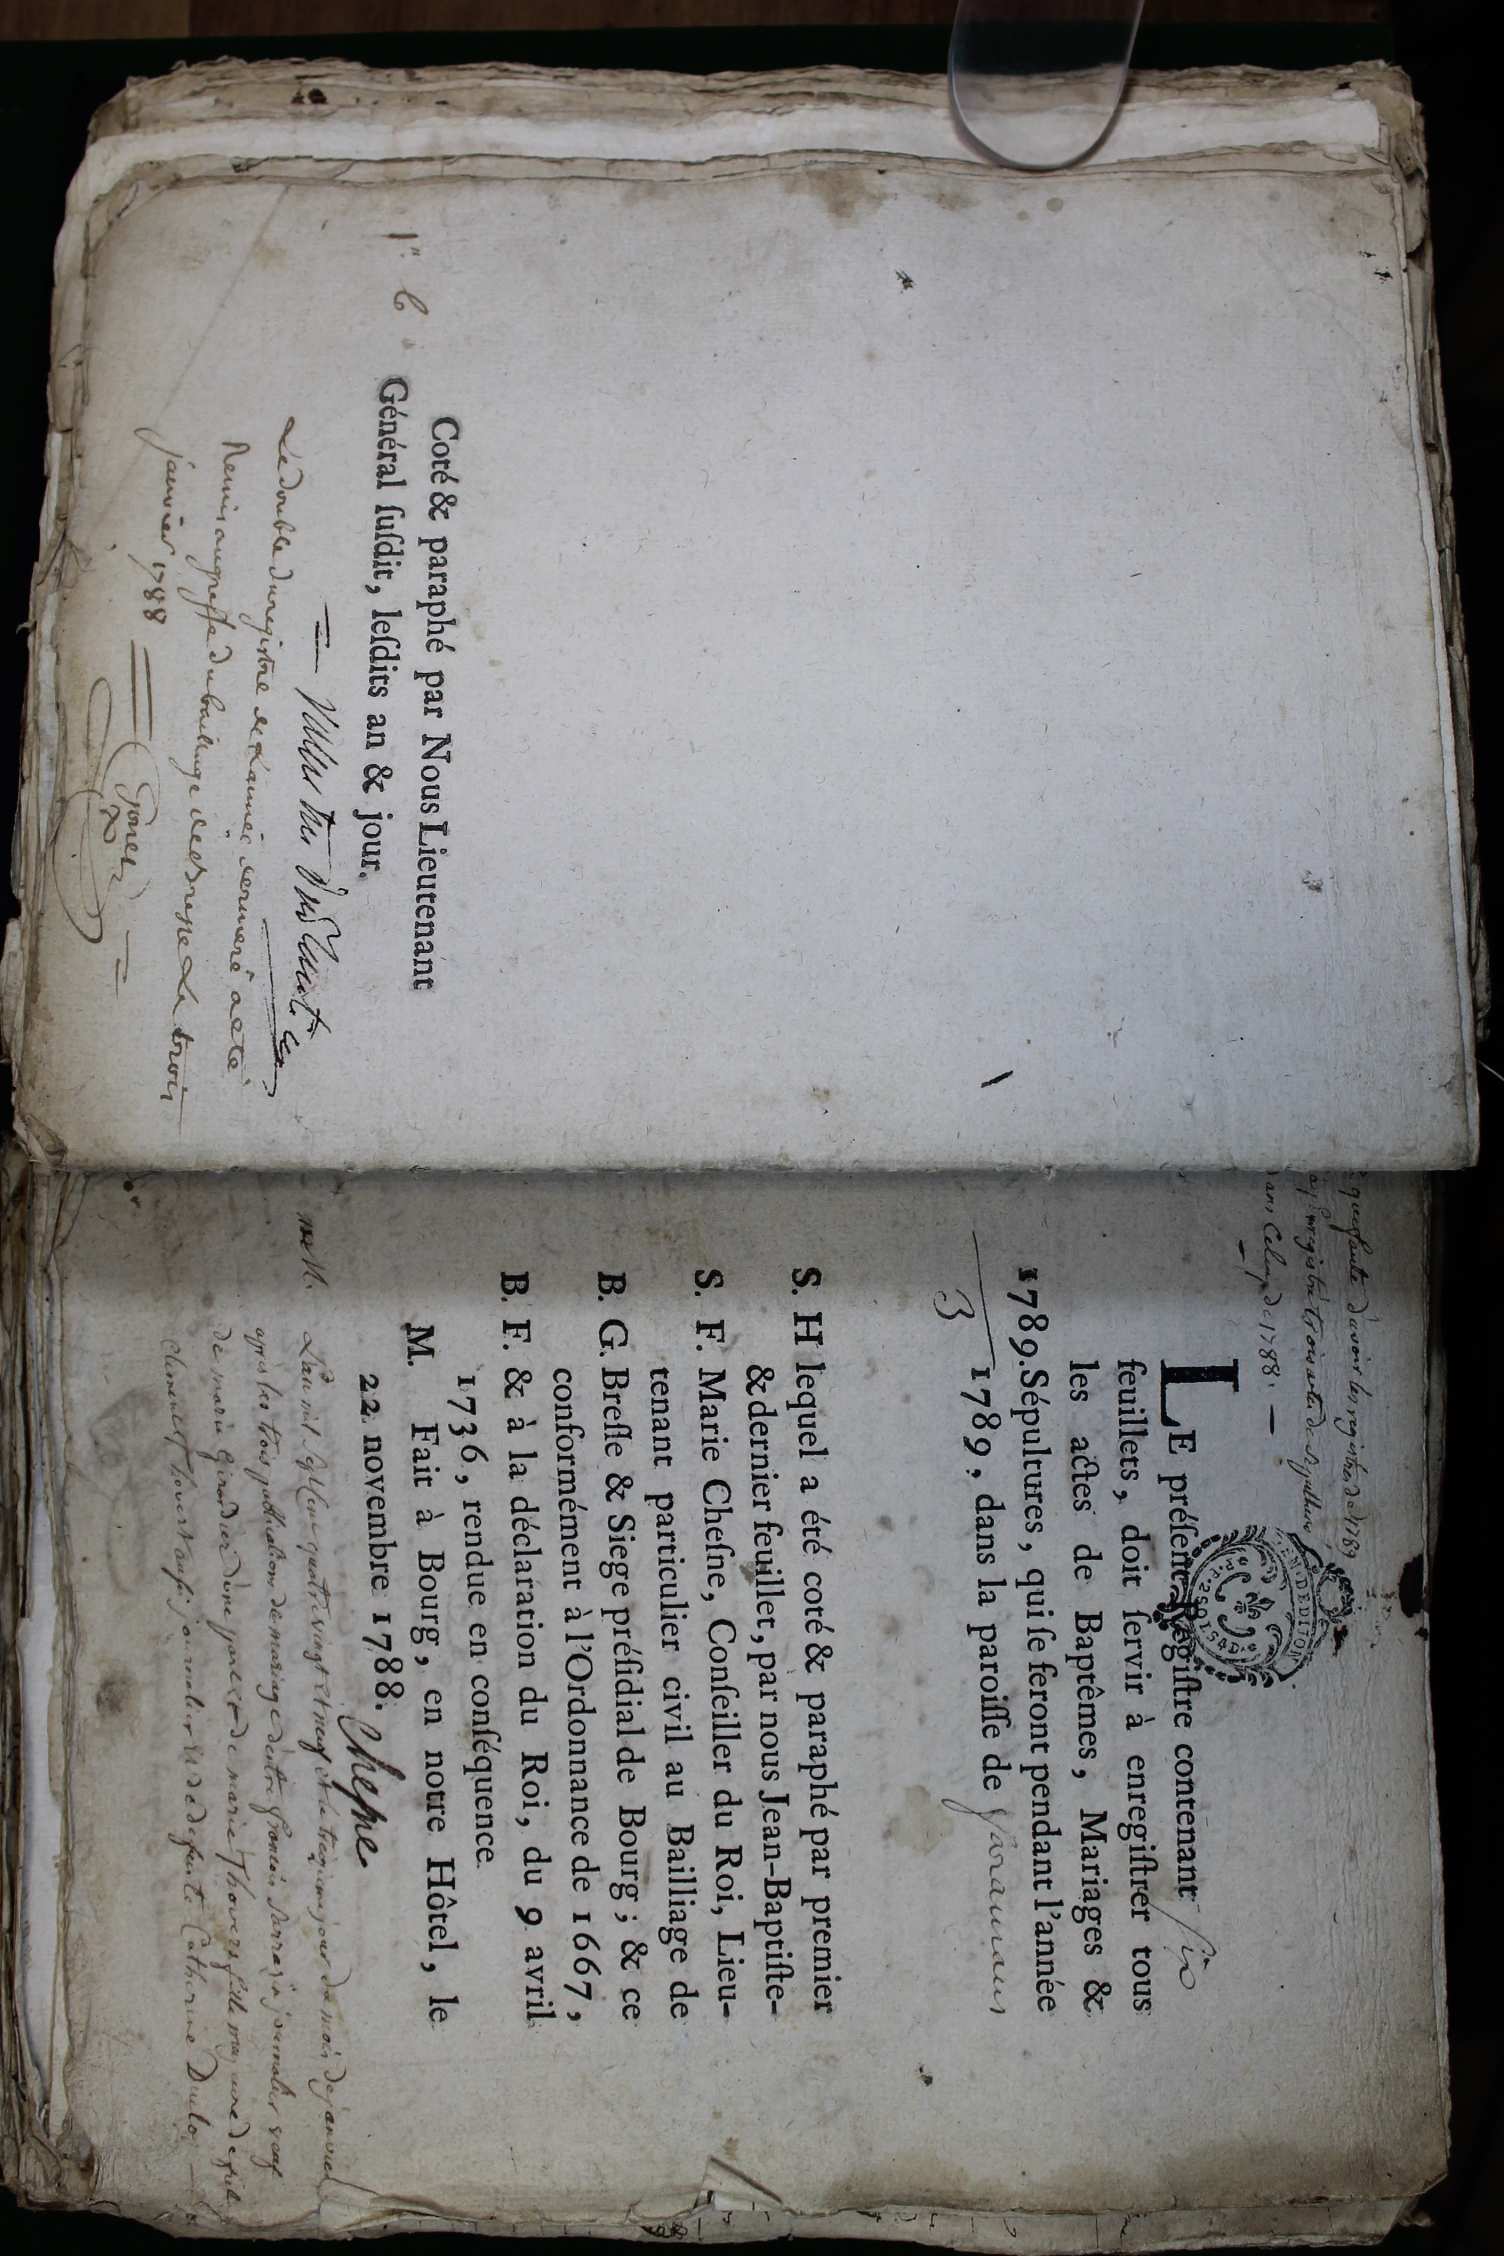 Coté & paraphé par Nous Lieutenant
Général ſuſdit, leſdits an & jour.
Le double du registre de l'année derniere a eté
Remis au greffe du bailliage de Bresse Le trois
janvier 1788
d'avoir les registres de 1789
trois actes de sepulture
dans Celuy de 1788. —
LE préſent Régiſtre contenant six
feuillets, doit ſervir à enregiſtrer tous
les actes de Baptêmes, Mariages &
1789. Sépultures, qui ſe feront pendant l'année
3 1789, dans la paroiſſe de
S. H lequel a été coté & paraphé par premier
& dernier feuillet, par nous Jean-Baptiſte-
S. F. Marie Cheſne, Conſeiller du Roi, Lieu-
tenant particulier civil au Bailliage de
B. G. Breſſe & Siege préſidial de Bourg; & ce
conformément à l'Ordonnance de 1667,
B. F. & à la déclaration du Roi, du 9 avril
1736, rendue en conſéquence.
M. Fait à Bourg, en notre Hôtel, le
22 novembre 1788. Chesne
L'an mil sept cent quatre vingt et neuf et le treizieme jour du mois de janvier
après les trois publications de mariage d'entre françois journalier veuf
de marie Girardier d'une part et de marie Thovert fille majeure de
Clement Thovert aussi journalier et de defunte Catherine